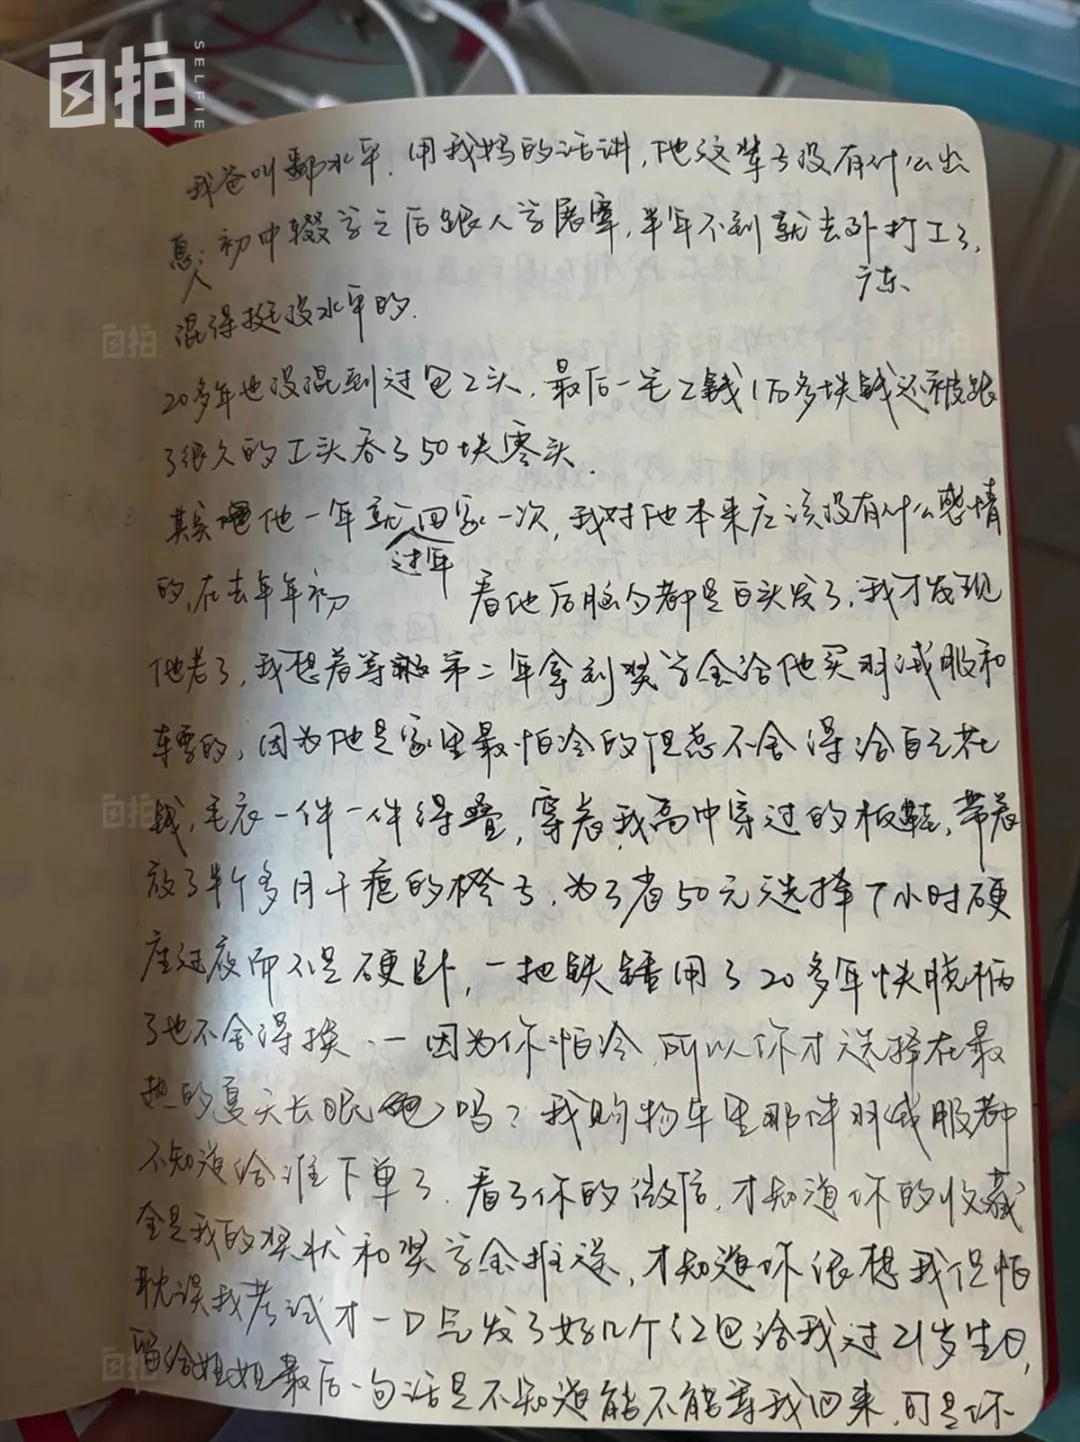 自拍
SELFIE
我爸叫鄢水平.用我妈的话讲,他这辈子没有什么出
息;初中辍学之后跟人学屠宰,半年不到就去外打工了,
人
广东
混得挺没水平的.
20多年也没混到过包工头.最后一笔工钱1万多块钱还被跟
了很久的工头吞了50块零头.
其实他一年就回家一次,我对他本来应该没有什么感情
过年
的,在去年年初 看他后脑勺都是白头发了,我才发现
他老了,我想着等第二年拿到奖学金给他买羽绒服和
的,因为他是家里最怕冷的但总不舍得给自己花
钱,毛衣一件一件得叠,穿着我高中穿过的板鞋,带着
放了半个多月干疤的橙子.为了省50元选择7小时硬
座过夜而不是硬卧,一把铁锤用了20多年快脱柄
了也不舍得换.一因为你怕冷,所以你才选择在最
热的夏天长眠吗?我购物车里那件羽绒服都
不知道给谁下单了.看了你的微信,才知道你的收藏
全是我的奖状和奖学金推送,才知道你很想我但怕
耽误我考试才一口气发了好几个红包给我过21岁生日,
留给姐姐最后一句话是不知道能不能等我回来,可是你
自拍
自拍
自拍
自拍